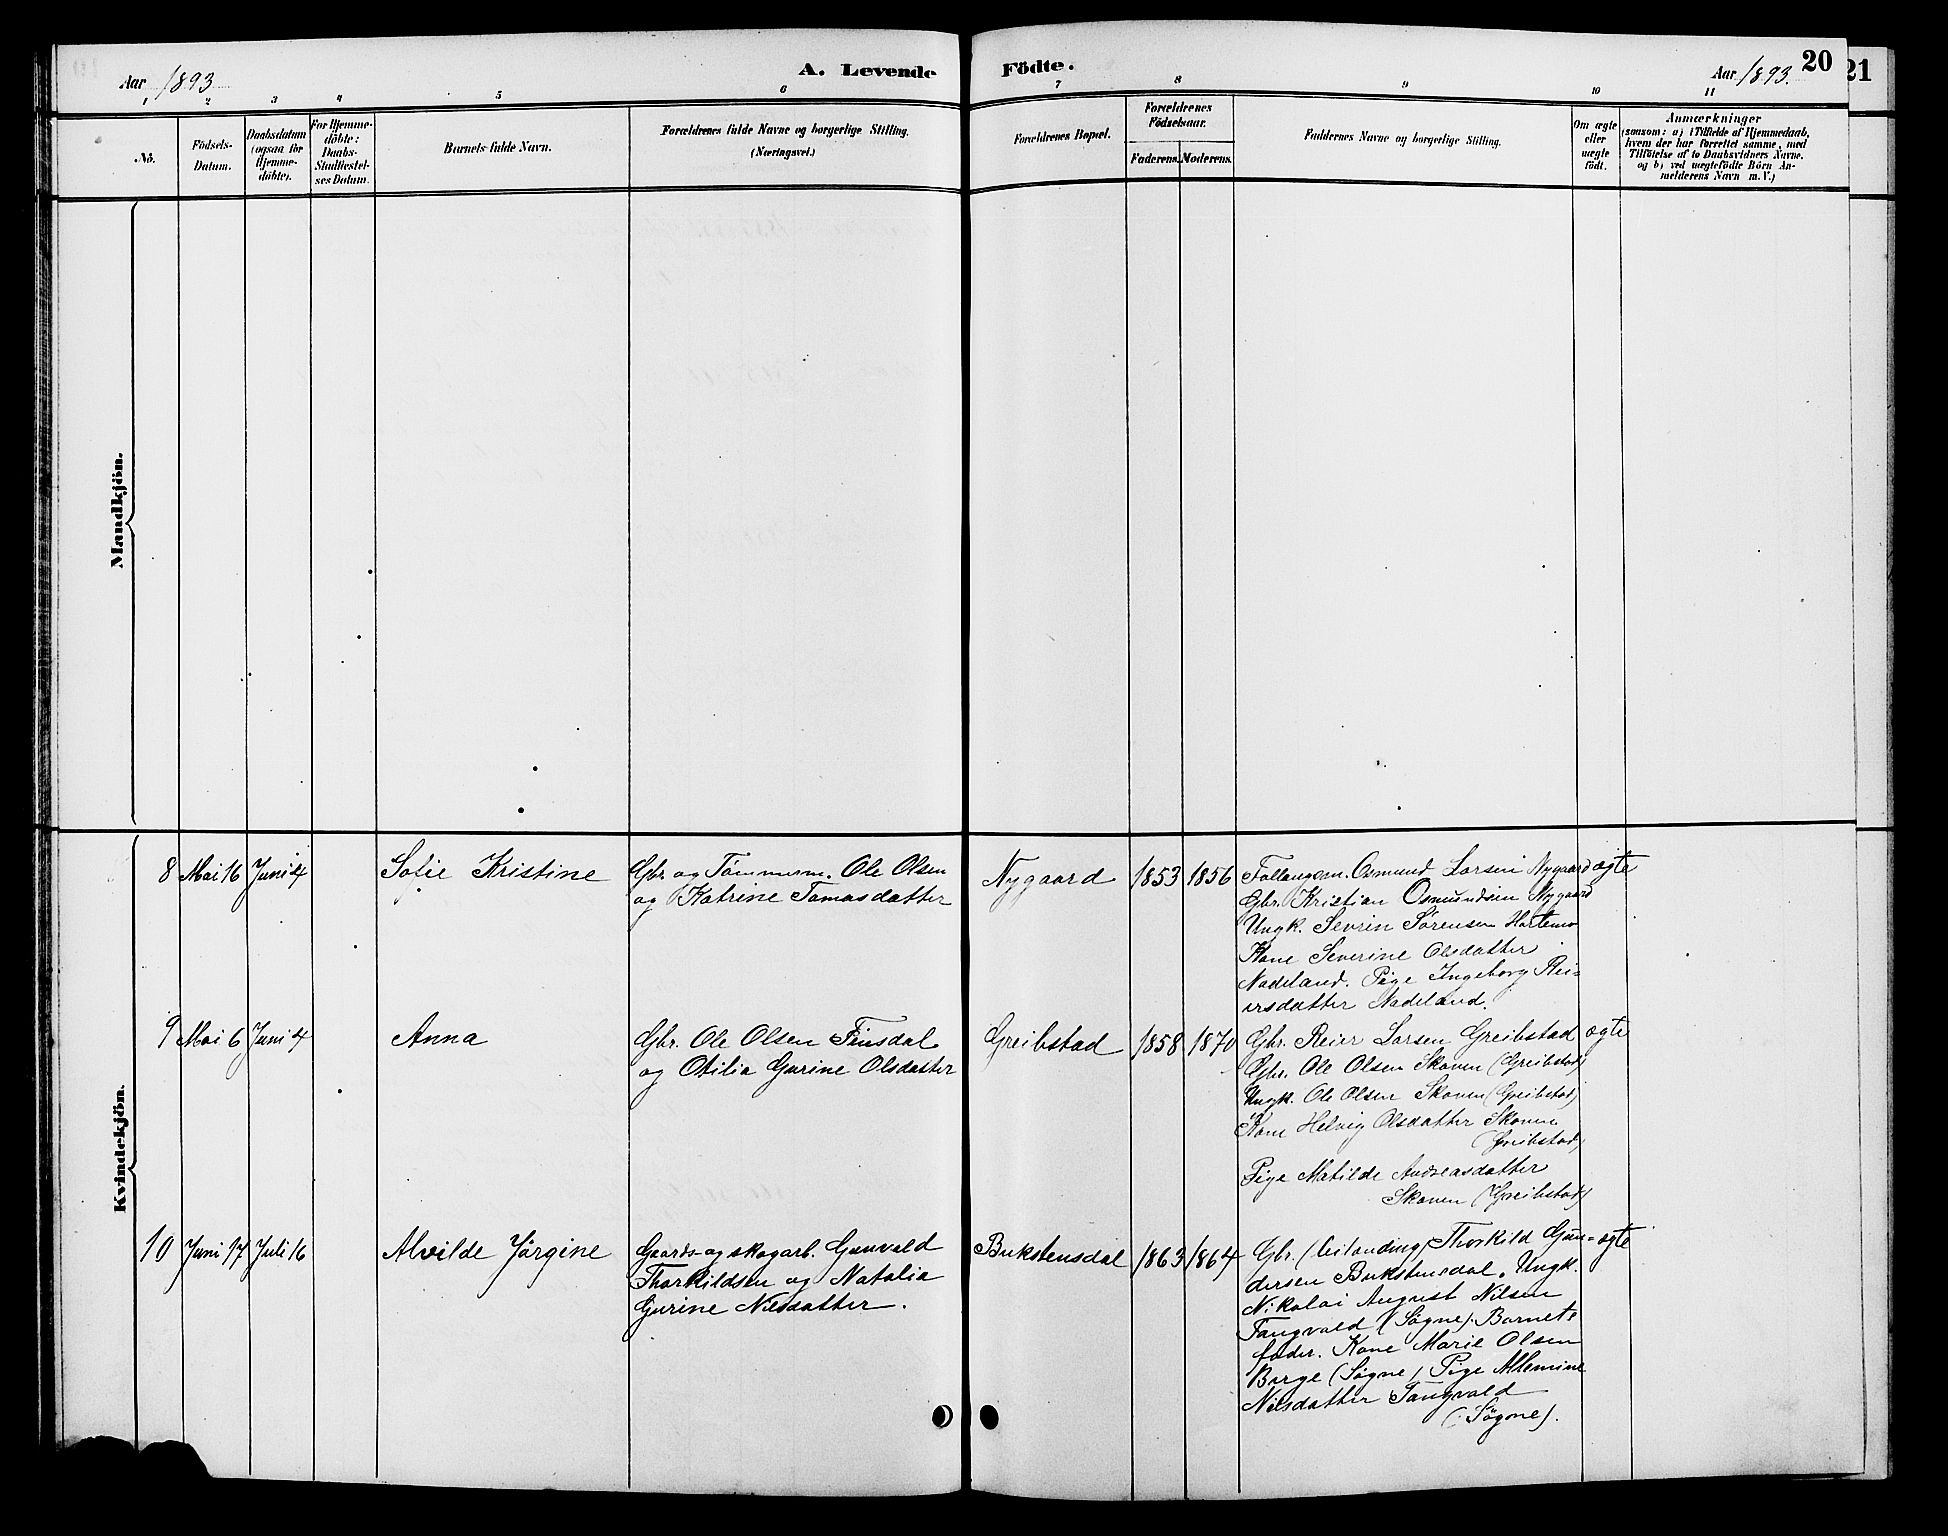 Aar 1893
A. Levende Födte.
Aar 1893. 20
21
1 2 3 4 5 6 7 8 9 10 11
No.
Födsels-
Datum.
Daabsdatum
(ogsaa for
Hjemme-
döbte).
For Hjemme-
döbte:
Daabs-
Stadfæstel-
ses Datum.
Barnets fulde Navn.
Forældrenes fulde Navne og borgerlige Stilling.
(Næringsvei.)
Forældrenes Bopæl.
Forældrenes
Födselsaar.
Faderens. Moderens.
Faddernes Navne og borgerlige Stilling.
Om ægte
eller
uægte
födt.
Anmærkninger
(saasom: a) i Tilfælde af Hjemmedaab,
hvem der har forrettet samme, med
Tilföielse af to Daabsvidners Navne.
og b) ved uægtefödte Börn An-
melderens Navn m. V.)
Mandkjön.
Kvindekjön.
8 Mai 16 Juni 4
Sofie Kristine
Gbr. og Tømmerm. Ole Olsen
og Katrine Tomasdatter
Nygaard
1853 1856
Osmund Larsen Nygaard
Gbr. Kristian Osmundsen Nygaard
Ungk. Sevrin Sørensen Hortemo
Kone Severine Olsdatter
Nadeland. Pige Ingeborg Rei-
ersdatter Nadeland.
ægte
9 Mai 6 Juni 4
Anna
Gbr. Ole Olsen Finsdal
og Otilia Gurine Olsdatter
Greibstad
1858 1870
Gbr. Reier Larsen Greibstad
Gbr. Ole Olsen Skoven (Greibstad)
Ungk. Ole Olsen Skoven (Greibstad)
Kone Helvig Olsdatter Skoven
(Greibstad)
Pige Matilde Andreasdatter
Skoven (Greibstad)
ægte
10 Juni 17 Juli 16
Alvilde Jørgine
Gaards- og skogarb. Gunvald
Thorkildsen og Natalia
Gurine Nilsdatter.
Bukstensdal
1863 1864
Gbr. Thorkild Gun-
dersen Bukstensdal. Ungk.
Nikolai August Nilsen
Tangvald (Søgne). Barnets
fader. Kone Marie Olsen
Borge (Søgne) Pige
Nilsdatter Tangvald
(Søgne).
ægte